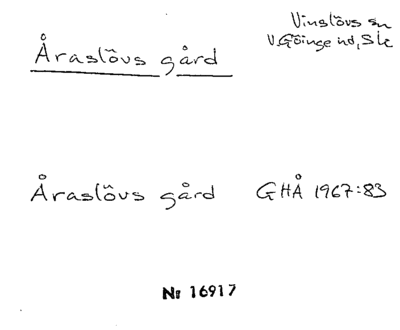 Vinslövs sn
V.Göinge hd, Sk
Åraslövs gård
Åraslövs gård GHÅ 1967:83
Nr 16917